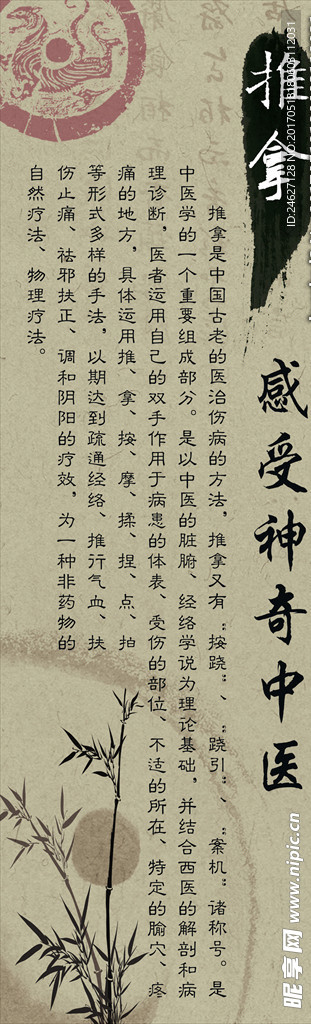 推拿
感受神奇中医
推拿是中国古老的医治伤病的方法，推拿又有“按跷”、“跷引”、“案机”诸称号。是
中医学的一个重要组成部分。是以中医的脏腑、经络学说为理论基础，并结合西医的解剖和病
理诊断，医者运用自己的双手作用于病患的体表、受伤的部位、不适的所在、特定的腧穴、疼
痛的地方，具体运用推、拿、按、摩、揉、捏、点、拍
等形式多样的手法，以期达到疏通经络、推行气血、扶
伤止痛、祛邪扶正、调和阴阳的疗效，为一种非药物的
自然疗法、物理疗法。
ID:24627128
昵享网 www.nipic.cn